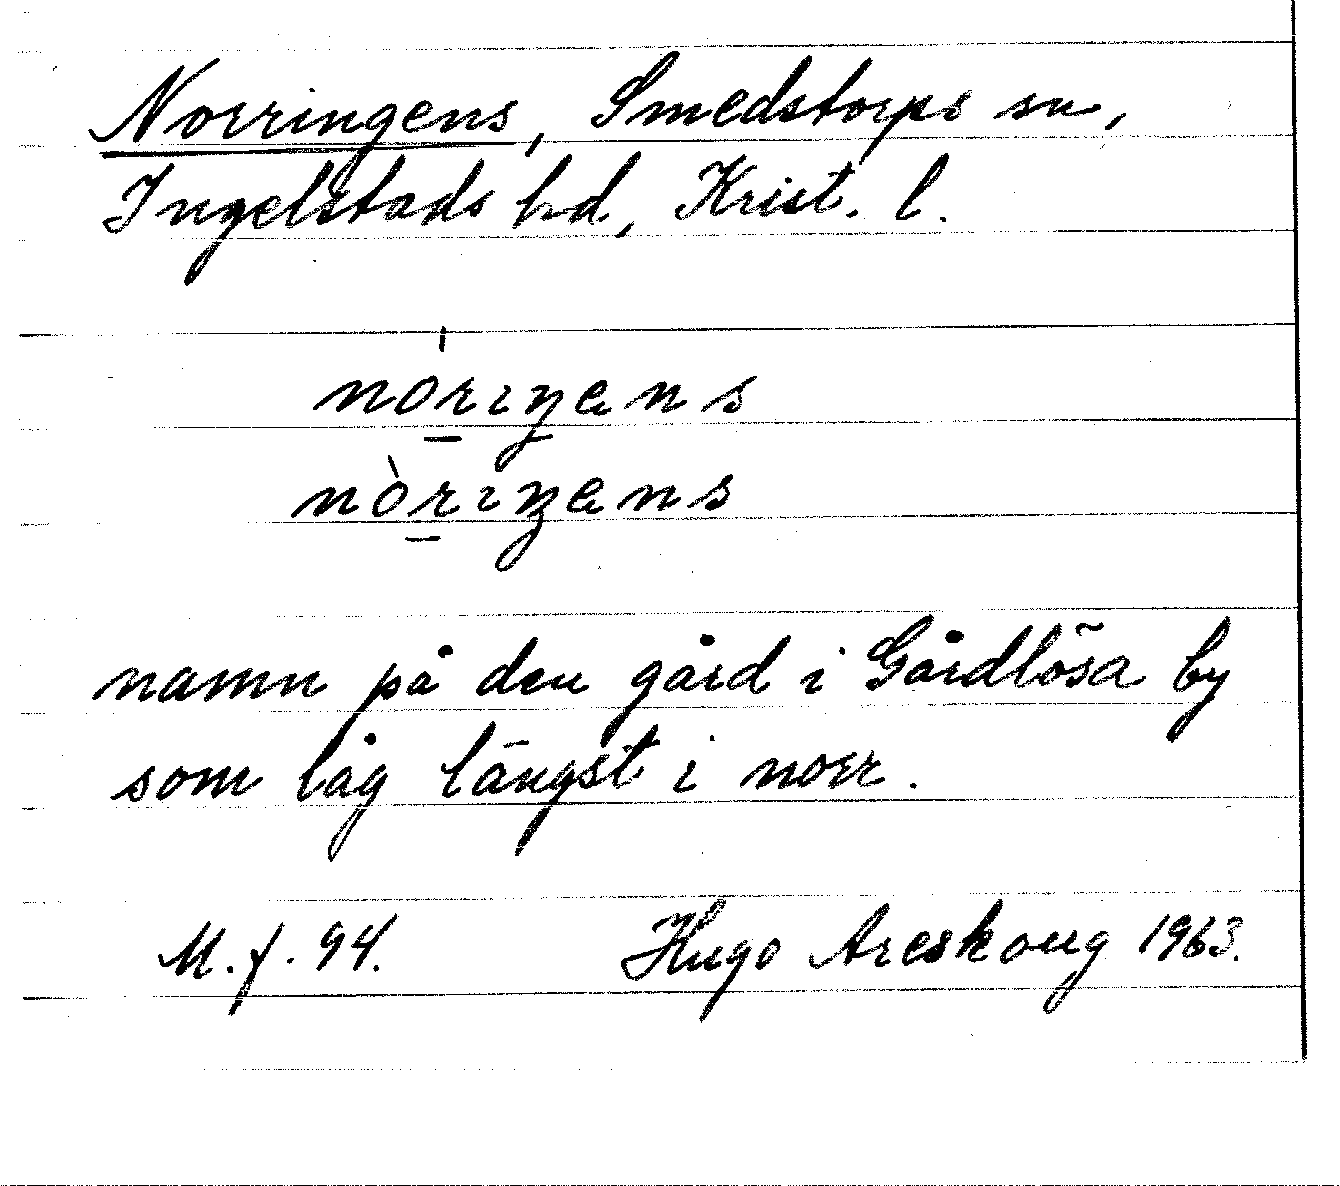 Norringens, Smedstorps sn,
Ingelstads hd, Krist. l.
nórıŋens
nòrıŋens
namn på den gård i Gårdlösa by
som låg längst i norr.
M.f. 94. Hugo Areskoug 1963.